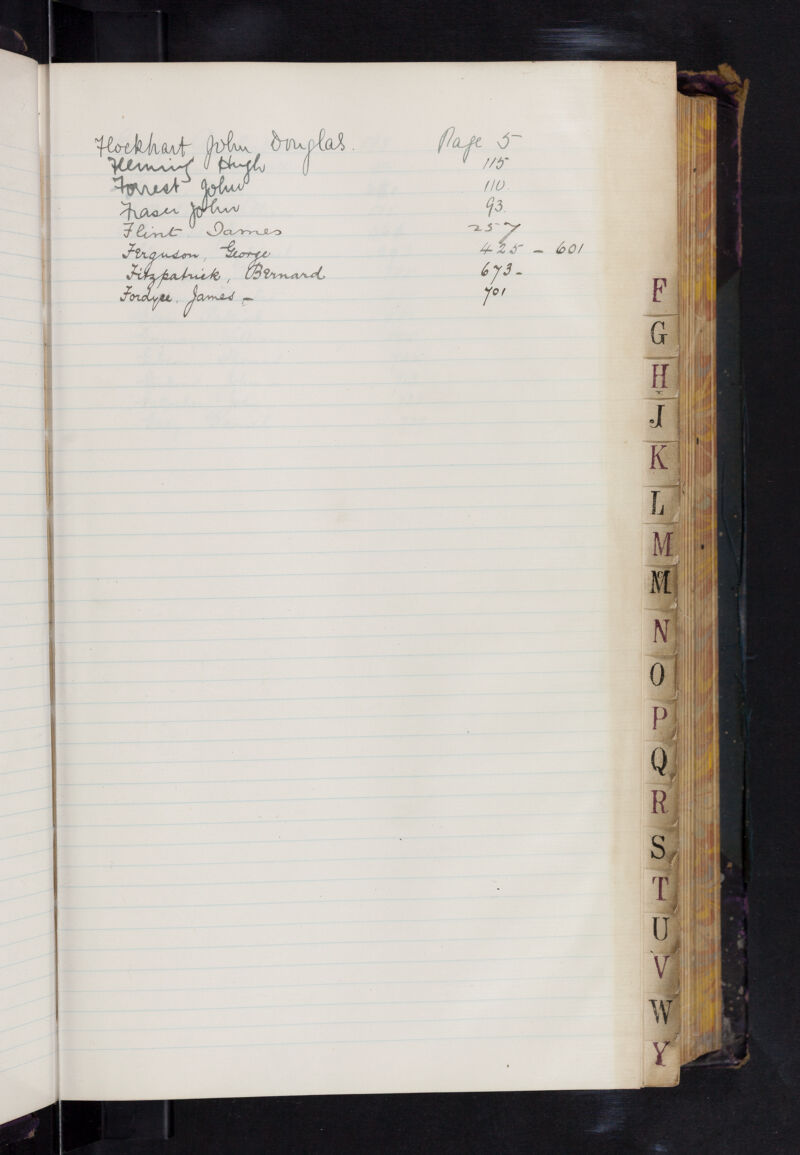 Flockhart John Douglas. Page 5
Fleming Hugh 115
Forrest John 110.
Fraser John 93.
Flint James 257
Ferguson, George 425 - 601
Fitzpatrick, Bernard 673-
Fordyce. James - 701
F
G
H
J
K
L
M
Mc
N
O
P
Q
R
S
T
U
V
W
Y